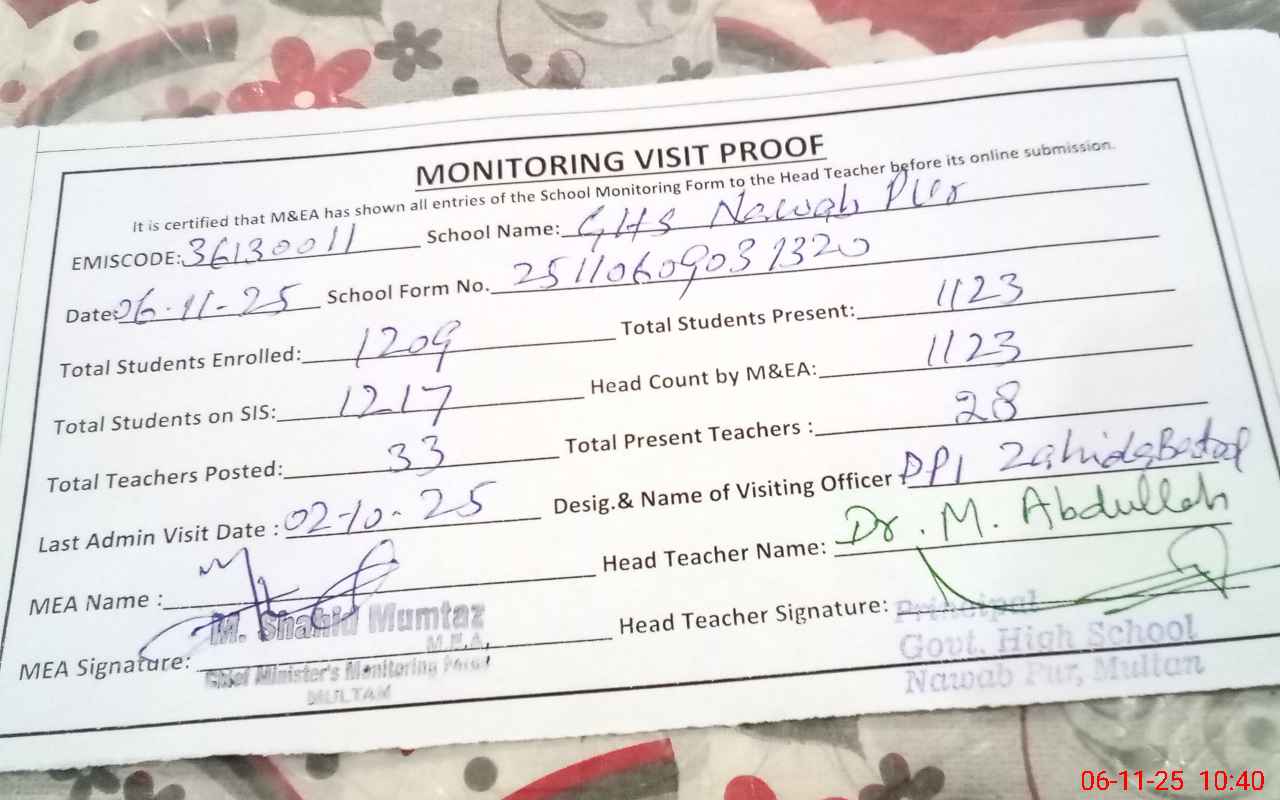 MONITORING VISIT PROOF
It is certified that M&EA has shown all entries of the School Monitoring Form to the Head Teacher before its online submission.
EMISCODE: 36130011 School Name: GHS Nawab Pur
Date: 06-11-25 School Form No. 25110609031320
Total Students Enrolled: 1209 Total Students Present: 1123
Total Students on SIS: 1217 Head Count by M&EA: 1123
Total Teachers Posted: 33 Total Present Teachers : 28
Last Admin Visit Date : 02-10-25 Desig.& Name of Visiting Officer : DPI
MEA Name : Head Teacher Name: Dr. M. Abdullah
M. Shahid Mumtaz
M.E.A,
MEA Signature: Head Teacher Signature:
Chief Minister's Monitoring Force
MULTAN
Principal
Govt. High School
Nawab Pur, Multan
06-11-25 10:40